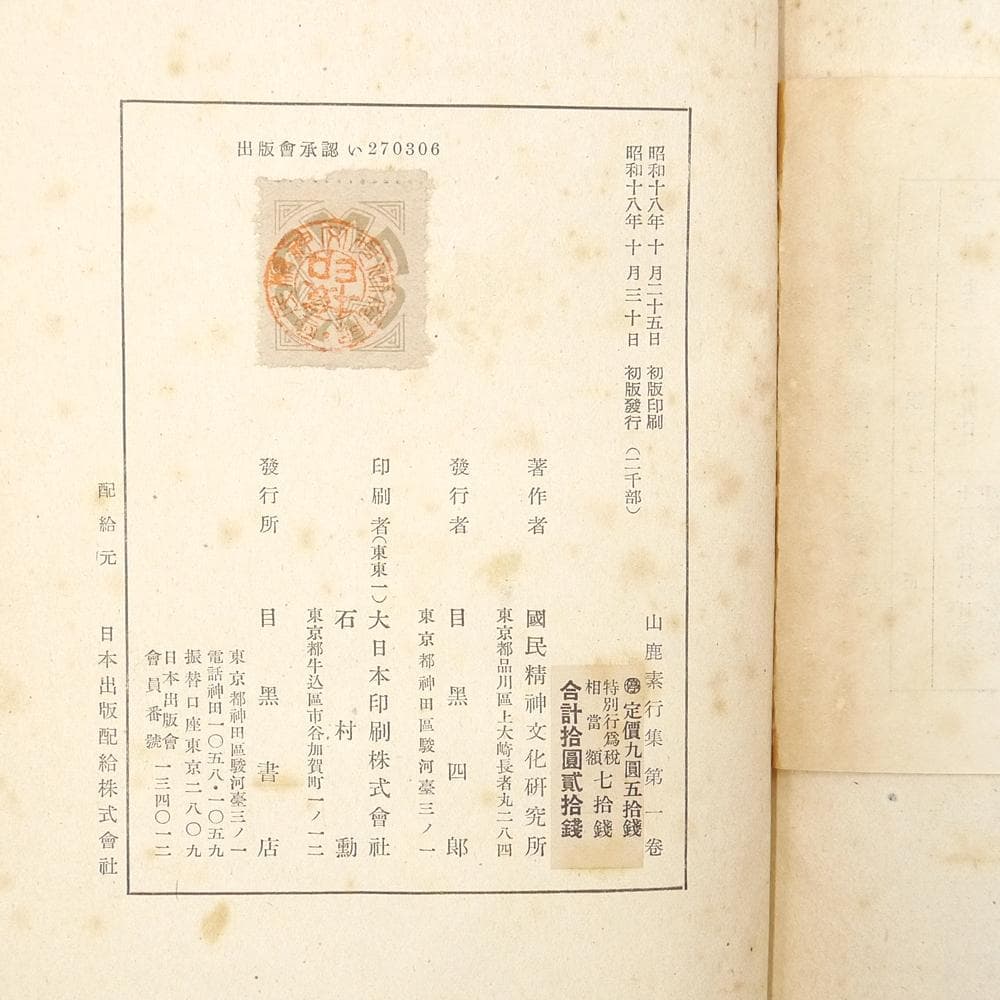 出版會承認 い270306
昭和十八年十月二十五日 初版印刷
昭和十八年十月三十日 初版發行 (二千部)
山鹿素行集第一卷
㊡定價九圓五拾錢
特別行爲税相當額七拾錢
合計拾圓貳拾錢
著作者 國民精神文化硏究所
東京都品川區上大崎長者丸二八四
發行者 目黑四郞
東京都神田區駿河臺三ノ一
印刷者(東東一) 大日本印刷株式會社
石村勳
東京都牛込區市谷加賀町一ノ一二
發行所 目黑書店
東京都神田區駿河臺三ノ一
電話神田一〇五八・一〇五九
振替口座東京二八〇九
日本出版會會員番號 一三四〇一二
配給元 日本出版配給株式會社